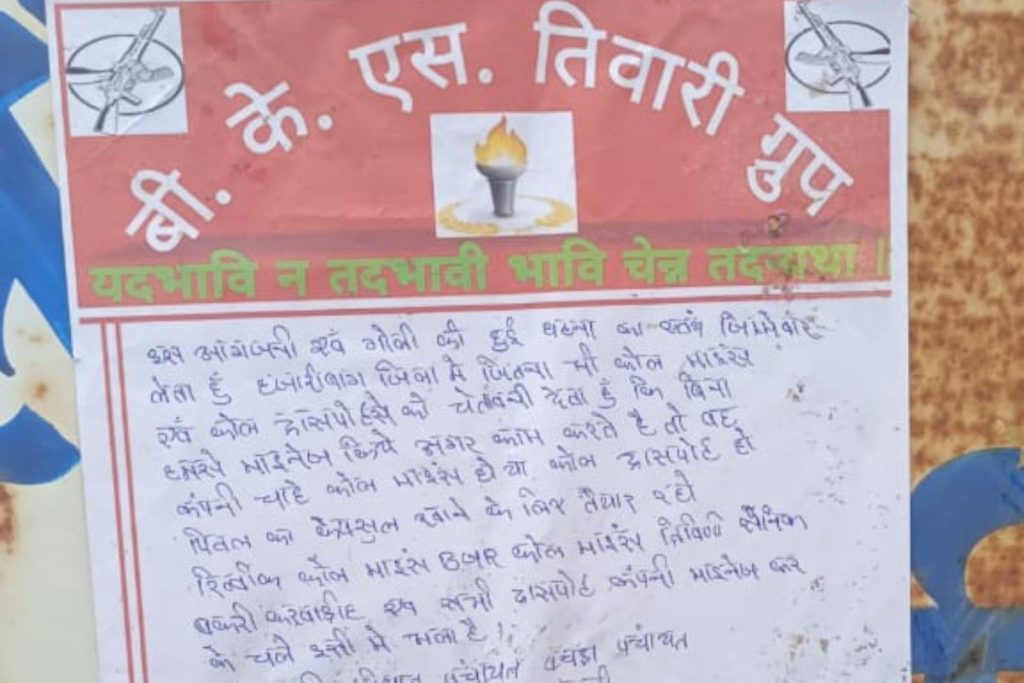 बी. के. एस. तिवारी ग्रुप
यदभावि न तदभावी भावि चेन्न तदन्यथा।
इस आगजनी एवं गोली की हुई घटना का स्वंय जिम्मेवार
लेता हुँ हजारीबाग जिला मे जितना भी कोल माइंस
एवं कोल ट्रांसपोर्टरों को चेतावनी देता हुं कि बिना
हमसे माइनेज किये अगर काम करते है तो वह
कंपनी चाहे कोल माइंस हो या कोल ट्रांसपोर्ट हो
पितल का केप्सुल खाने के लिए तैयार रहो
रित्वीक कोल माइंस BGR कोल माइंस त्रिवेणी सैनिक
चकरी एवं सभी ट्रांसपोर्ट कंपनी माइनेज कर
के चले इसी मे भला है।
पंचायत पंचायत